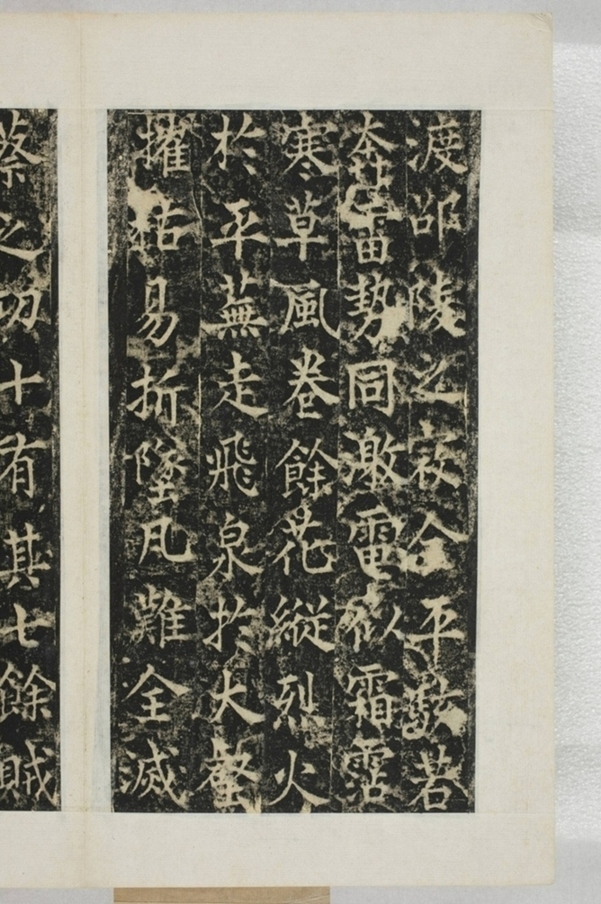 渡邵陵之夜全平駭若
奔雷勢同激電似霜霑
寒草風卷餘花縱烈火
於平蕪走飛泉於大壑
摧枯易折墜瓦難全滅
蔡之功十有其七餘賊